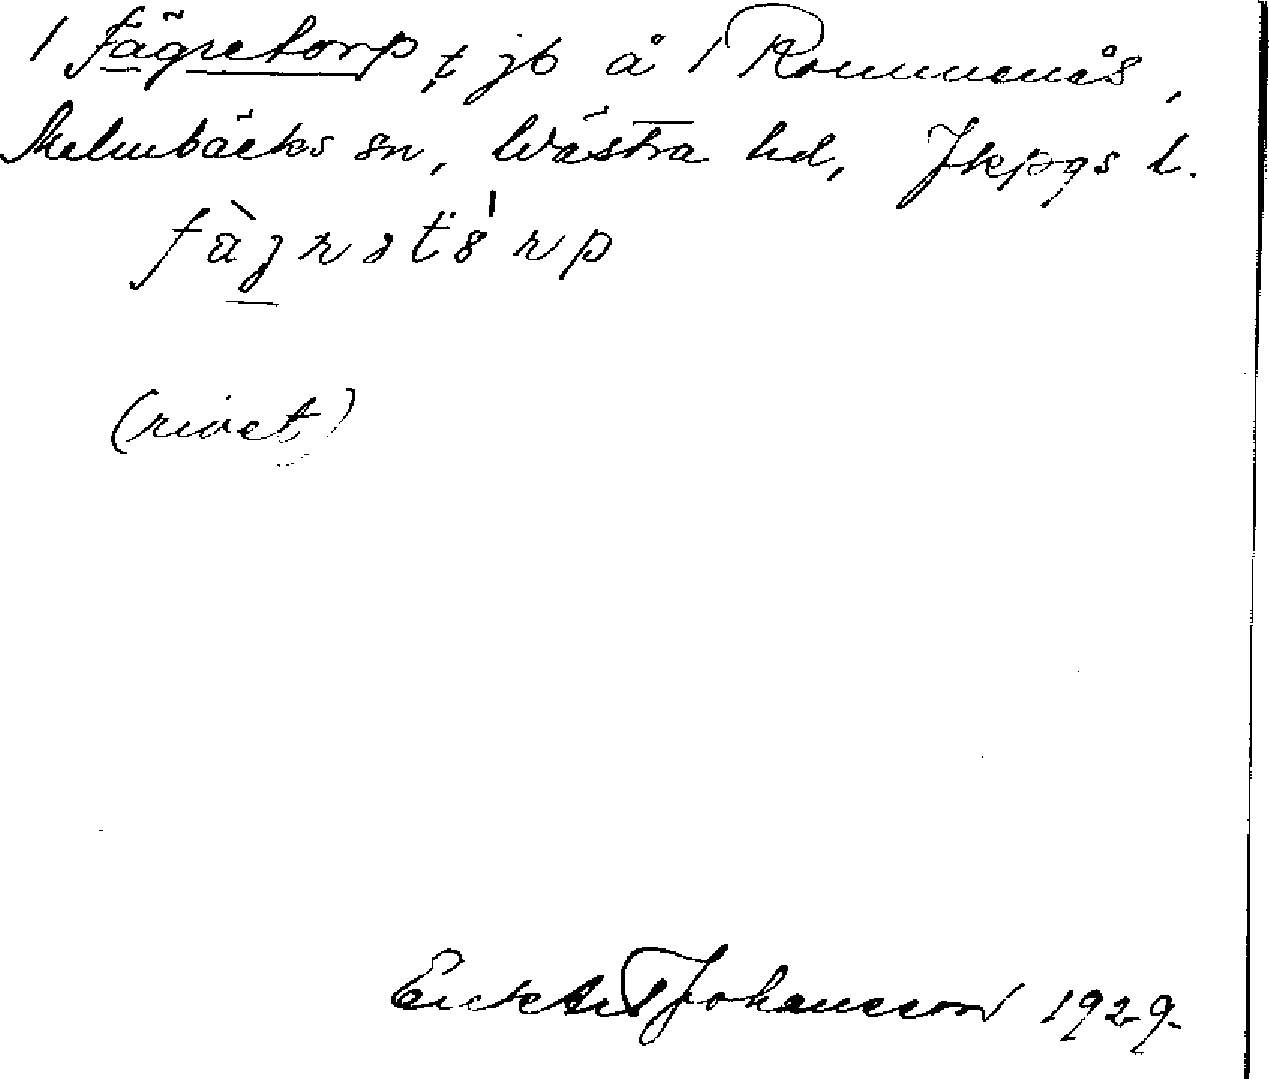 / Fägretorp t jb å / Rommenås,
Malmbäcks sn, Wästra hd, Jkpgs l.
fàgrətö́rp
(rivet)
Johansson 1929.